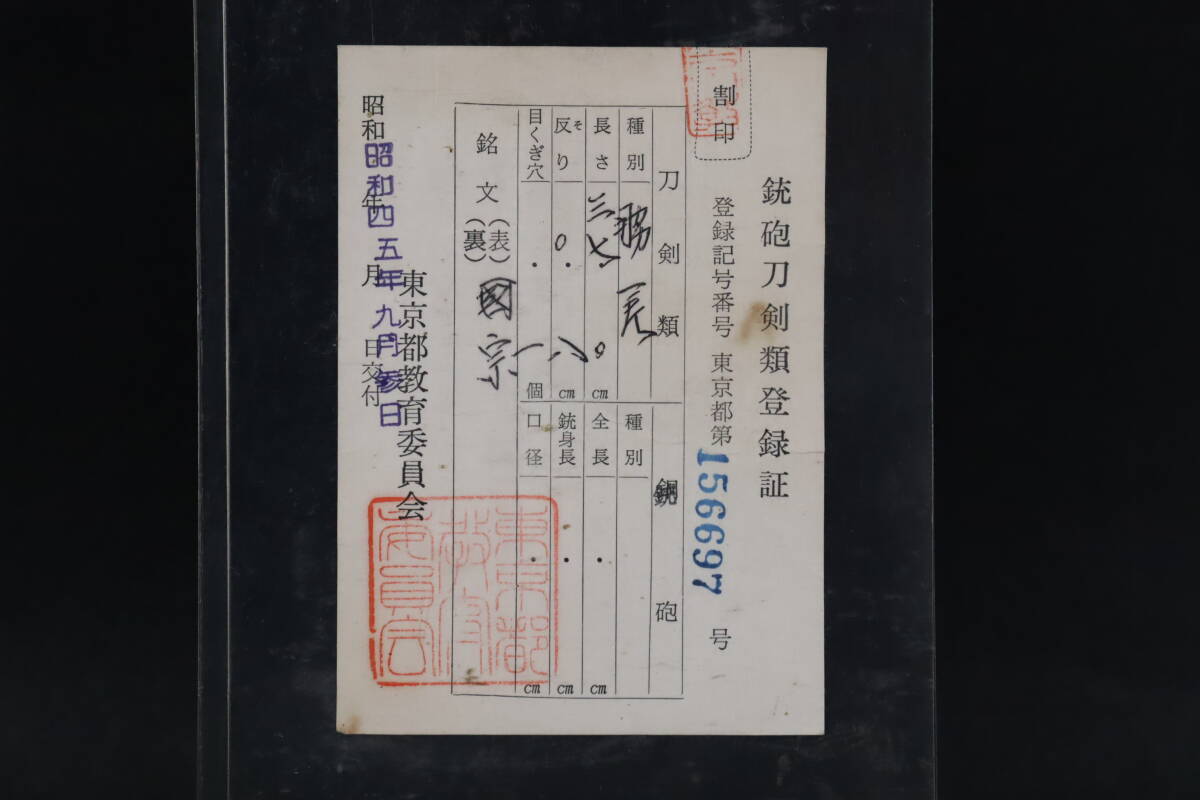 銃砲刀剣類登録証
割印
登録記号番号 東京都第156697号
刀剣類
種別
長さ 三七.〇 cm
反り そ 〇.八 cm
目くぎ穴 一 個
銘文(表)(裏) 國宗
銃砲
種別
全長 . cm
銃身長 . cm
口径 . cm
東京都教育委員会
昭和 年 月 日交付
昭和四五年九月参日
東京都教育委員会